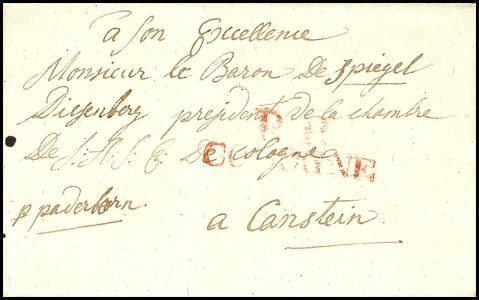 a Son Excellence
Monsieur le Baron De Spiegel
Diesenberg president de la chambre
De S. A. S. E. De Cologne
P. P.
COLOGNE
p paderborn
a Canstein.